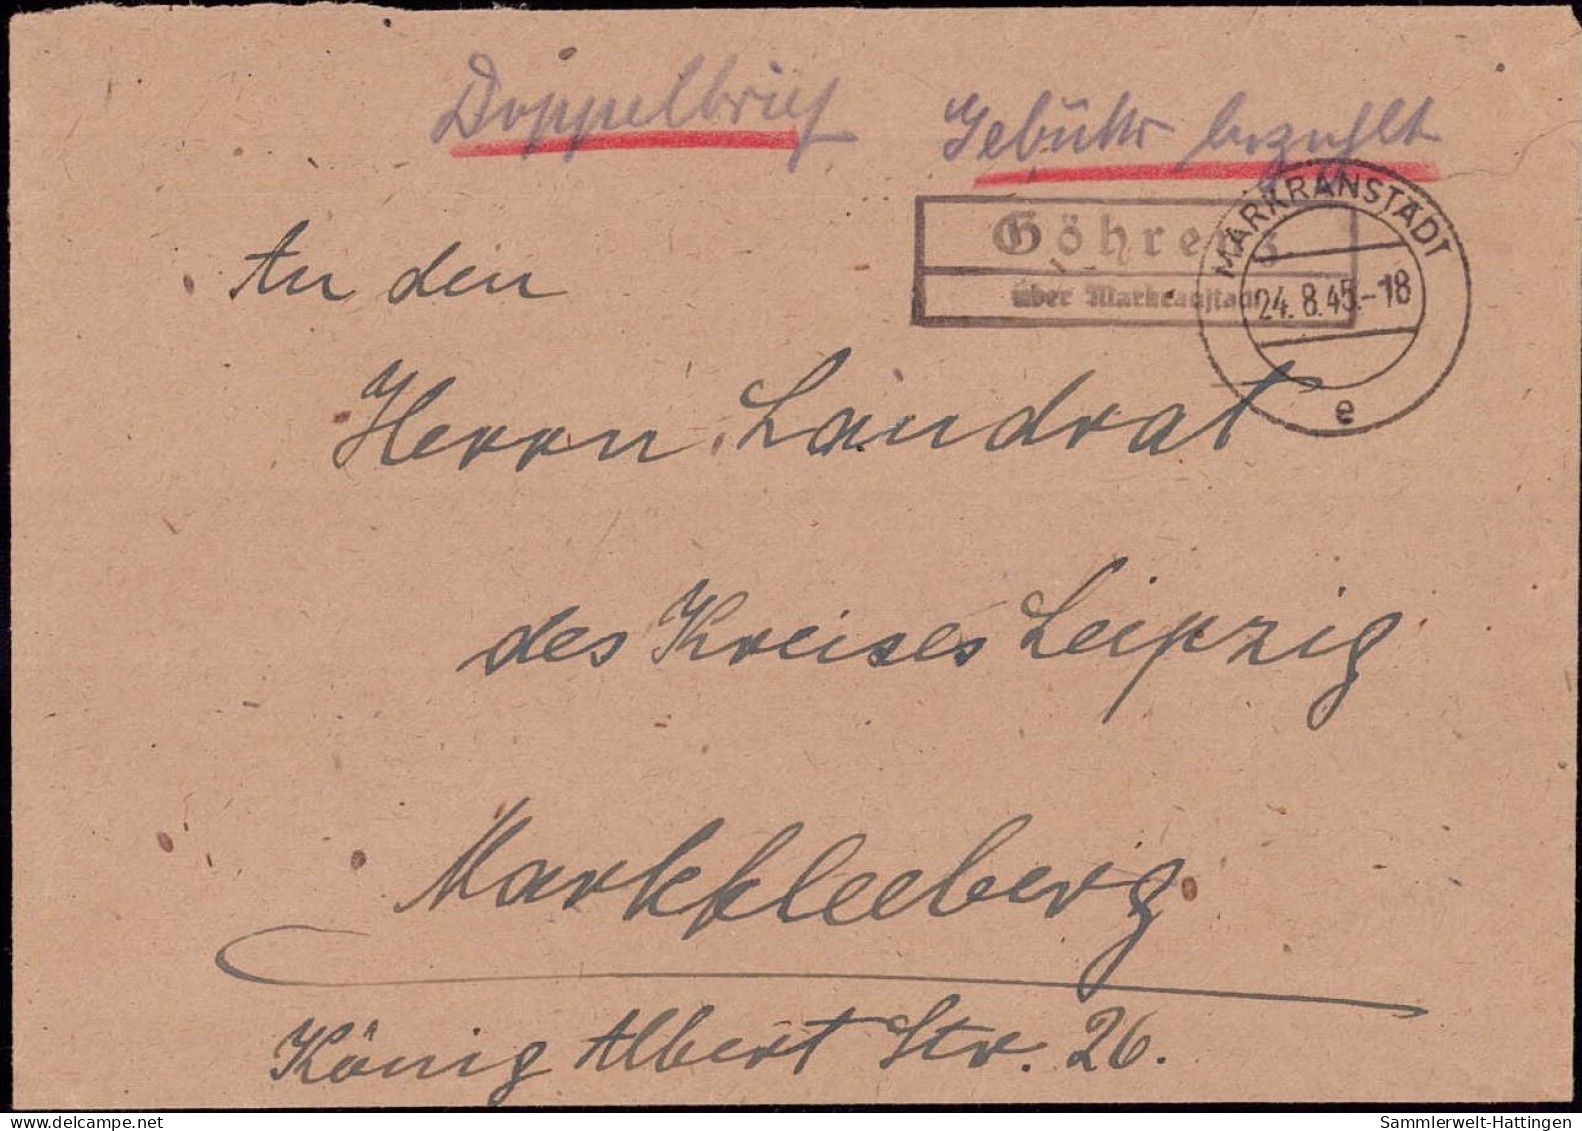 Doppelbrief Gebühr bezahlt
Göhrenz
über Markranstädt
MARKRANSTÄDT
24.8.45.-18
e
An den
Herrn Landrat
des Kreises Leipzig
Markkleeberg
König Albert Str. 26.
Sammlerwelt-Hattingen